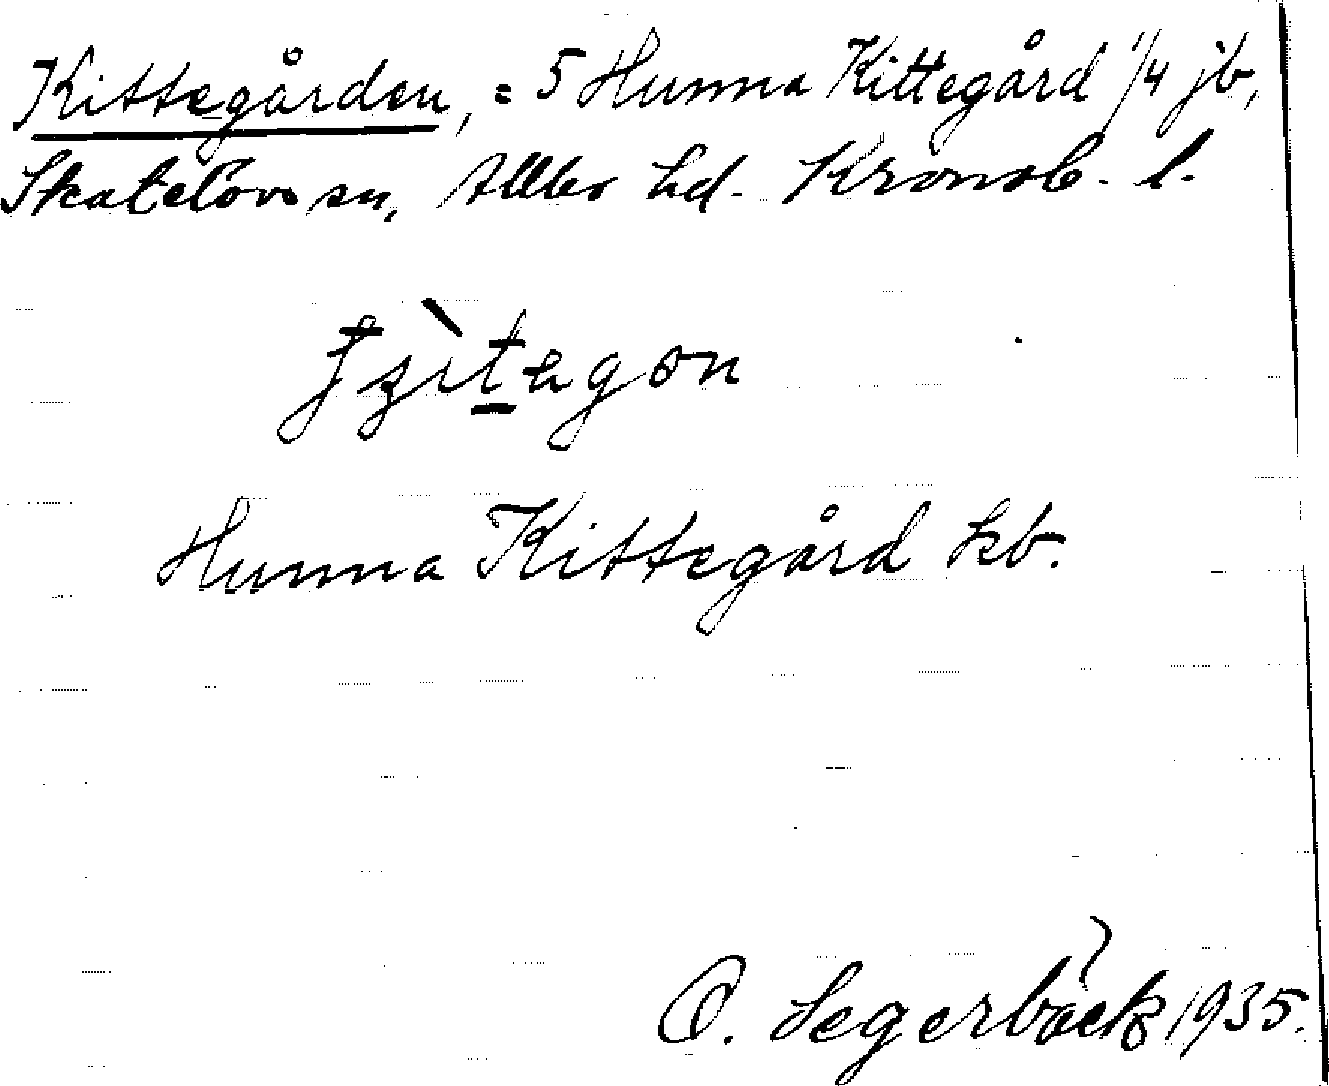 Kittegården, = 5 Hunna Kittegård 1/4 jb,
Skatelövs sn, Allbo hd. Kronob. l.
Hunna Kittegård kb.
O. Segerbäck 1935.